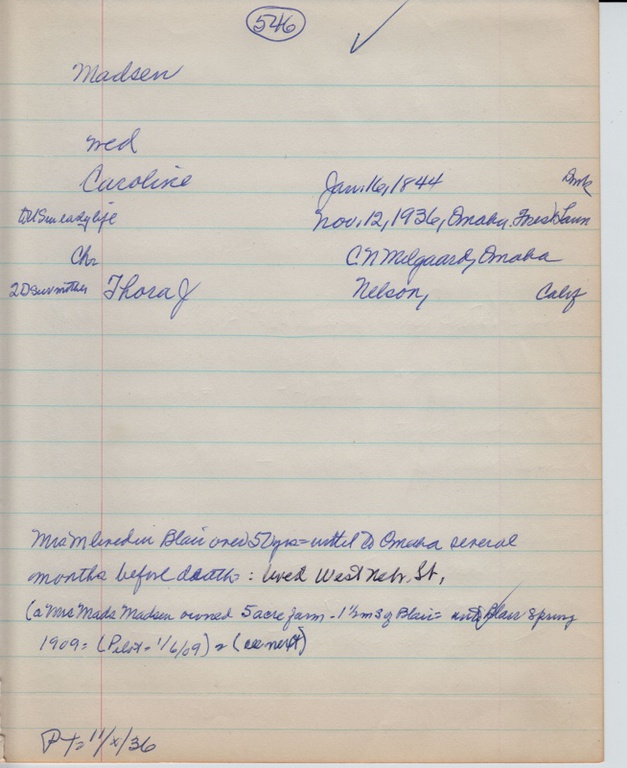 546
Madsen
wed
Caroline Jan. 16, 1844 Dmk
to US in early life Nov. 12, 1936, Omaha, Forest Lawn
Ch C N Melgaard, Omaha
2 D surv mother Thora J Nelson, Calif
Mrs M lived in Blair over 50 yrs = until to Omaha several
months before death = : lived West Nebr. St,
(a Mrs Mads Madsen owned 5 acre farm - 1½ m S of Blair = into Blair Spring
1909 = (Pilot - 1/6/09) = (see next)
PT = 11/x/36